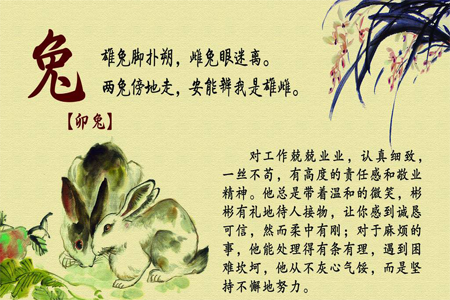 兔
雄兔脚扑朔，雌兔眼迷离。
两兔傍地走，安能辨我是雄雌。
【卯兔】
对工作兢兢业业，认真细致，
一丝不苟，有高度的责任感和敬业
精神。他总是带着温和的微笑，彬
彬有礼地待人接物，让你感到诚恳
可信，然而柔中有刚；对于麻烦的
事，他能处理得有条有理，遇到困
难坎坷，他从不灰心气馁，而是坚
持不懈地努力。